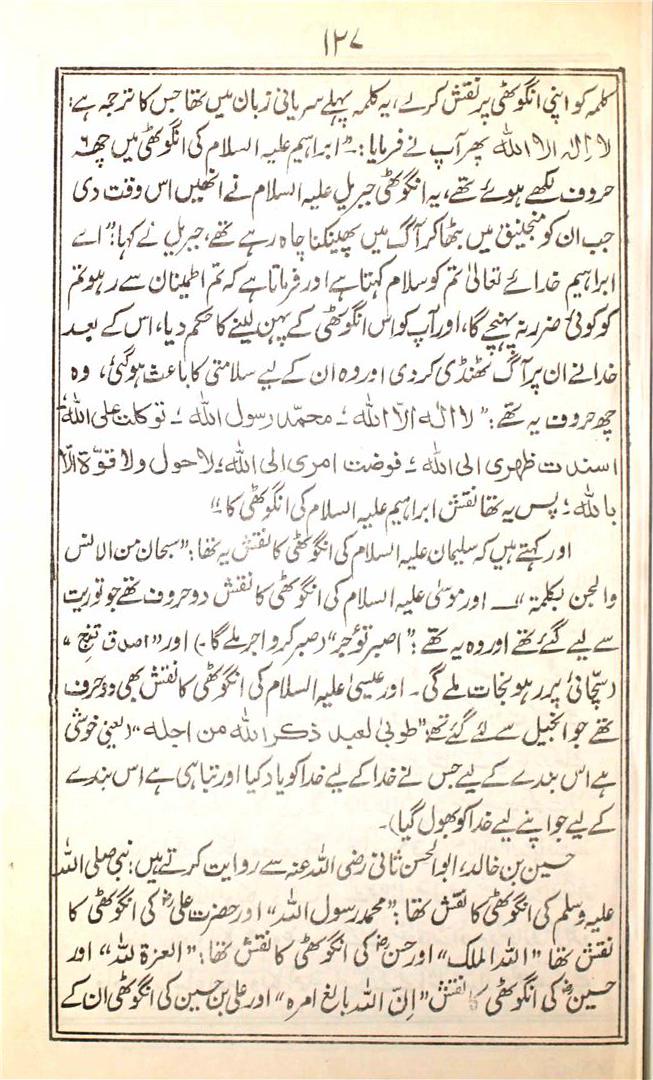 ۱۲۷
کلمہ کو اپنی انگوٹھی پر نقش کرلے، یہ کلمہ پہلے سریانی زبان میں تھا جس کا ترجمہ ہے:
لا الٰہ الا اللہ پھر آپ نے فرمایا:۔ "ابراہیم علیہ السلام کی انگوٹھی میں چھ ۶
حروف لکھے ہوئے تھے، یہ انگوٹھی جبریل علیہ السلام نے انھیں اس وقت دی
جب ان کو منجنیق میں بٹھا کر آگ میں پھینکنا چاہ رہے تھے، جبریل نے کہا: "اے
ابراہیم خدائے تعالیٰ تم کو سلام کہتا ہے اور فرماتا ہے کہ تم اطمینان سے رہو تم
کو کوئی ضرر نہ پہنچے گا، اور آپ کو اس انگوٹھی کے پہن لینے کا حکم دیا، اس کے بعد
خدا نے ان پر آگ ٹھنڈی کر دی اور وہ ان کے لیے سلامتی کا باعث ہوگئی، وہ
چھ حروف یہ تھے: "لا الٰہ الّا اللہ ۔ محمّد رسول اللہ ۔ توکلت علی اللہ ۔
اسندت ظھری الی اللہ ۔ فوضت امری الی اللہ ۔ لا حول ولا قوّۃ الّا
باللہ ۔ پس یہ تھا نقش ابراہیم علیہ السلام کی انگوٹھی کا ۔"
اور کہتے ہیں کہ سلیمان علیہ السلام کی انگوٹھی کا نقش یہ تھا: "سبحان من الانس
والجن بکلمۃ" ۔ اور موسیٰ علیہ السلام کی انگوٹھی کا نقش دو حروف تھے جو توریت
سے لیے گئے تھے اور وہ یہ تھے: "اصبر توْجر" (صبر کرو اجر ملے گا۔) اور "اصدق تنج"
(سچّائی پر رہو نجات ملے گی ۔ اور عیسیٰ علیہ السلام کی انگوٹھی کا نقش بھی دو حرف
تھے جو انجیل سے لئے گئے تھے: "طوبیٰ لعبد ذکر اللہ من اجلہ" (یعنی خوشی
ہے اس بندے کے لیے جس نے خدا کے لیے خدا کو یاد کیا اور تباہی ہے اس بندے
کے لیے جو اپنے لیے خدا کو بھول گیا)۔
حسین بن خالد، ابوالحسن ثانی رضی اللہ عنہ سے روایت کرتے ہیں: نبی صلی اللہ
علیہ وسلم کی انگوٹھی کا نقش تھا: "محمد رسول اللہ" اور حضرت علیؓ کی انگوٹھی کا
نقش تھا "اللہ الملک" اور حسنؓ کی انگوٹھی کا نقش تھا: "العزۃ للہ" اور
حسینؓ کی انگوٹھی کا نقش "اِنّ اللہ بالغ امرہ" اور علی بن حسین کی انگوٹھی ان کے